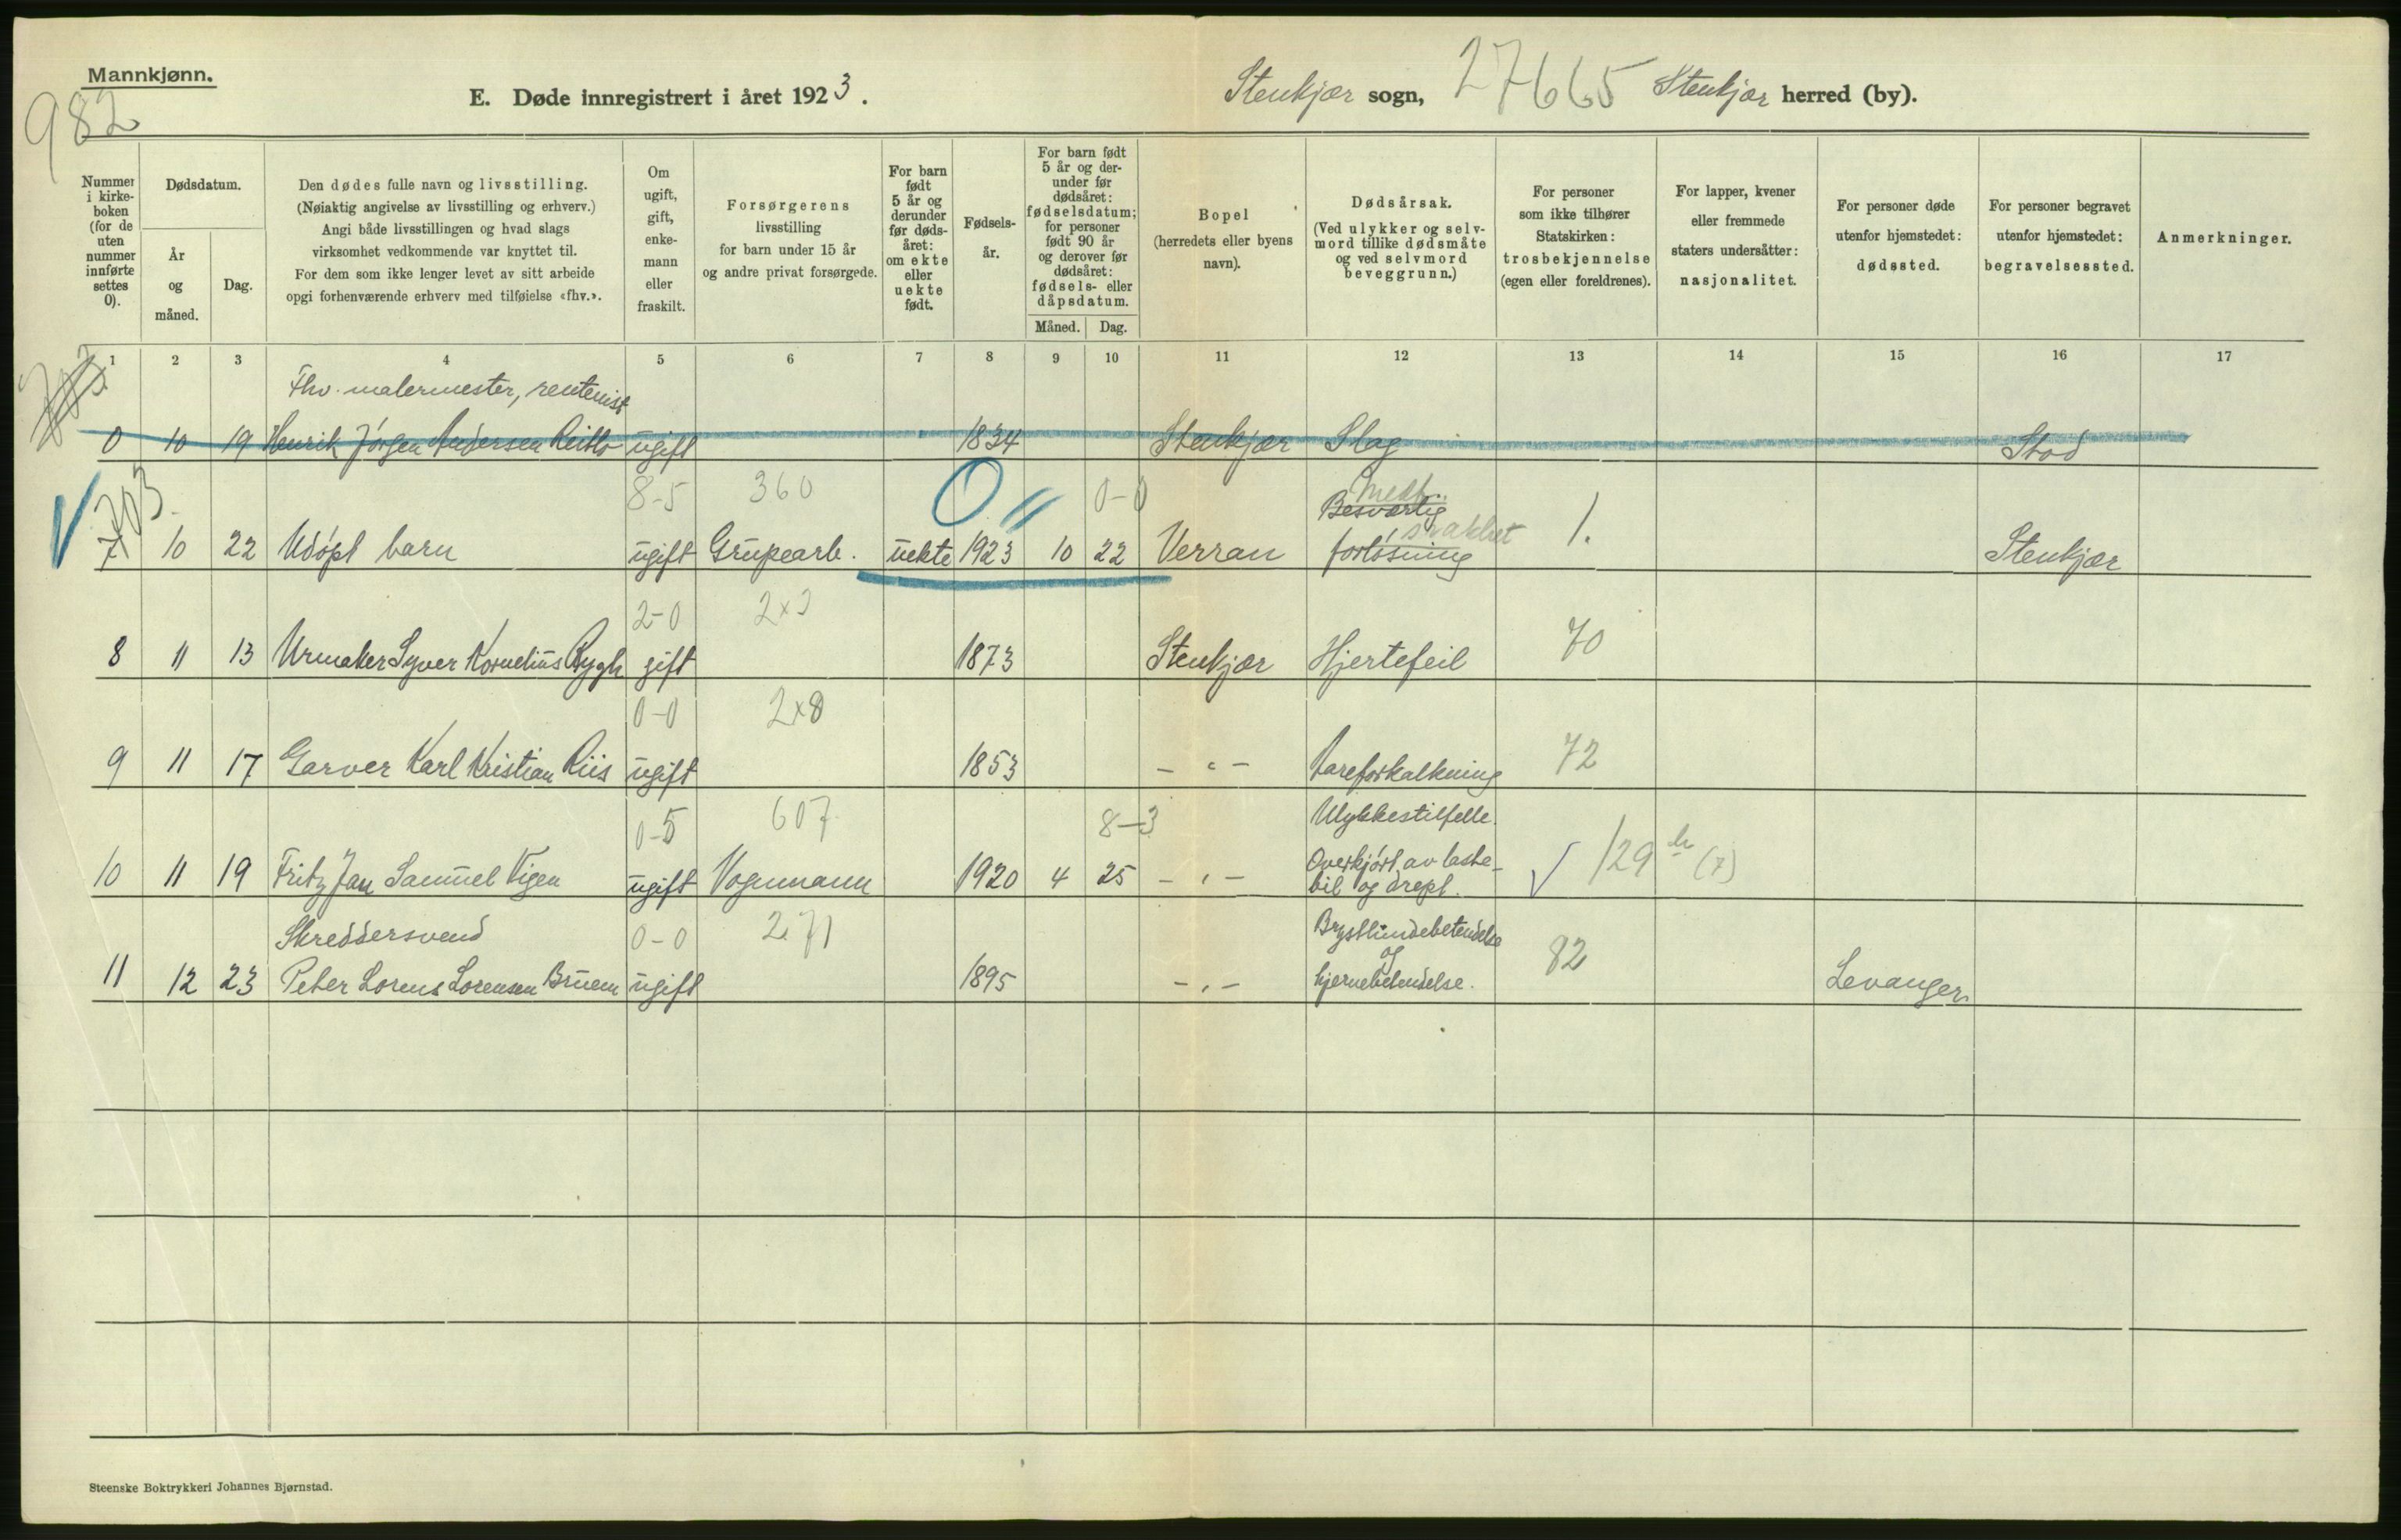 Mannkjønn.
982
E. Døde innregistrert i året 1923.
Stenkjær sogn, 27665 Stenkjær herred (by).
Nummer i kirkeboken (for de uten nummer innførte settes 0).
Dødsdatum.
År og måned.
Dag.
Den dødes fulle navn og livsstilling.
(Nøiaktig angivelse av livsstilling og erhverv.)
Angi både livsstillingen og hvad slags
virksomhet vedkommende var knyttet til.
For dem som ikke lenger levet av sitt arbeide
opgi forhenværende erhverv med tilføielse «fhv.».
Om ugift, gift, enkemann eller fraskilt.
Forsørgerens
livsstilling
for barn under 15 år
og andre privat forsørgede.
For barn født 5 år og derunder før dødsåret: om ekte eller uekte født.
Fødselsår.
For barn født 5 år og derunder før dødsåret: fødselsdatum; for personer født 90 år og derover før dødsåret: fødsels- eller dåpsdatum.
Måned. Dag.
Bopel
(herredets eller byens
navn).
Dødsårsak.
(Ved ulykker og selvmord tillike dødsmåte og ved selvmord beveggrunn.)
For personer
som ikke tilhører
Statskirken:
trosbekjennelse
(egen eller foreldrenes).
For lapper, kvener
eller fremmede
staters undersåtter:
nasjonalitet.
For personer døde
utenfor hjemstedet:
dødssted.
For personer begravet
utenfor hjemstedet:
begravelsessted.
Anmerkninger.
1 2 3 4 5 6 7 8 9 10 11 12 13 14 15 16 17
Fhv. malermester, rentenist
0 10 19 Henrik Jørgen Andersen ugift 1834 Stenkjær Slag Stod
703 8-5 360 0 0-0 Besværlig Medf.
7 10 22 Udøpt barn ugift Grupearb. uekte 1923 10 22 Verran forløsning svakhet 1. Stenkjær
2-0 2x2
8 11 13 Urmaker Syver Kornelius Rygh gift 1873 Stenkjær Hjertefeil 70
0-0 2x8
9 11 17 Garver Karl Kristian Riis ugift 1853 - " - Aareforkalkning 72
0-5 607 8-3 Ulykkestilfelle.
10 11 19 Fritz Jan Samuel Vigen ugift Vognmann 1920 4 25 - " - Overkjørt av lastebil og drept. 129 (7)
Skreddersvend 0-0 271 Brysthindebetendelse
og
11 12 23 Peter Lorens Lorensen Bruem ugift 1895 - " - hjernebetendelse. 82 Levanger
Steenske Boktrykkeri Johannes Bjørnstad.